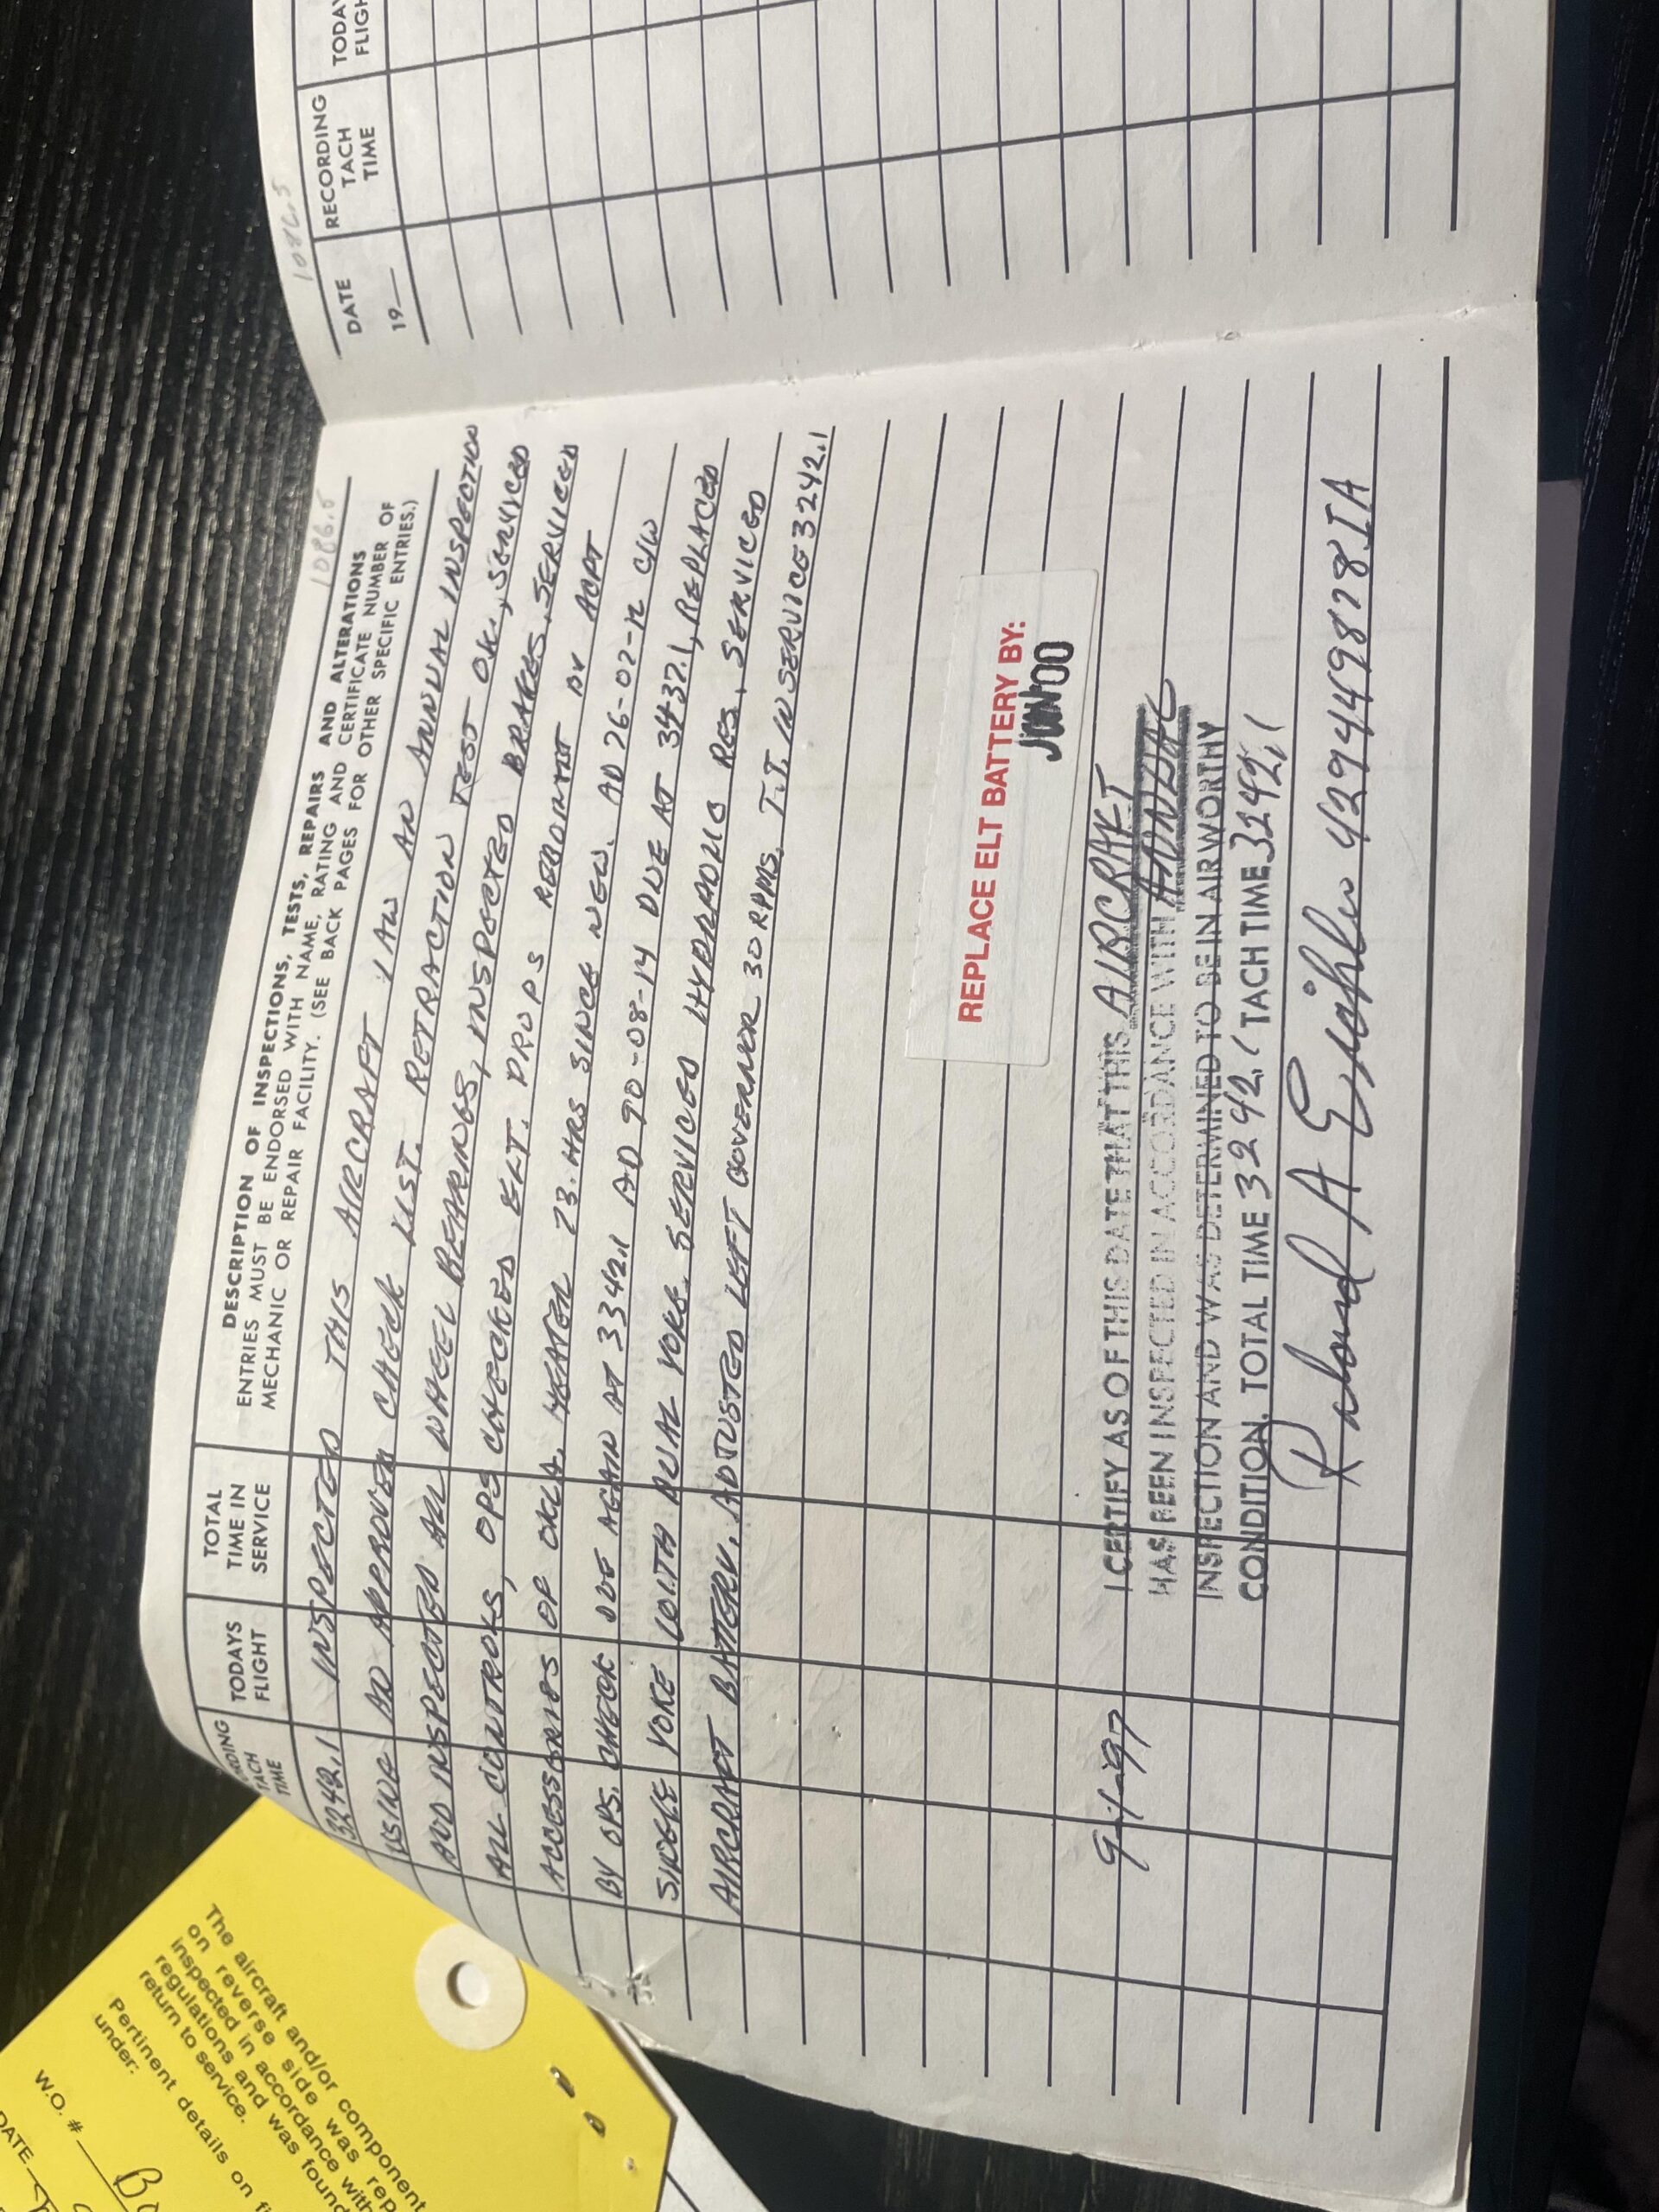 1086.5
RDING TACH TIME
TODAYS FLIGHT
TOTAL TIME IN SERVICE
DESCRIPTION OF INSPECTIONS, TESTS, REPAIRS AND ALTERATIONS
ENTRIES MUST BE ENDORSED WITH NAME, RATING AND CERTIFICATE NUMBER OF
MECHANIC OR REPAIR FACILITY. (SEE BACK PAGES FOR OTHER SPECIFIC ENTRIES.)
3242.1 INSPECTED THIS AIRCRAFT IAW AN ANNUAL INSPECTION
USING AN APPROVED CHECK LIST. RETRACTION TEST OK., SERVICED
AND INSPECTED ALL WHEEL BEARINGS, INSPECTED BRAKES, SERVICED
ALL CONTROLS, OPS CHECKED ELT. PROPS BY ACPT
ACCESSORIES OF OKLA. HEATER 23. HRS SINCE NEW. AD 26-02-12 C/W
BY OPS. CHECK DUE AGAIN AT 3342.1 AD 90-08-14 DUE AT 3437.1, REPLACED
SINGLE YOKE WITH DUAL YOKE. SERVICED HYDRAULIC RES, SERVICED
AIRCRAFT BATTERY. ADJUSTED LEFT GOVERNOR 30 RPMS. T.T. IN SERVICE 3242.1
REPLACE ELT BATTERY BY:
JUN 00
9-1-97 I CERTIFY AS OF THIS DATE THAT THIS AIRCRAFT
HAS BEEN INSPECTED IN ACCORDANCE WITH ANNUAL
INSPECTION AND WAS DETERMINED TO BE IN AIRWORTHY
CONDITION. TOTAL TIME 3242.1 TACH TIME 3242.1
A 429449878IA
1086.5
DATE
19
RECORDING TACH TIME
TODAY
FLIGH
The aircraft and/or component
on reverse side was rep
inspected in accordance with
regulations and was foun
return to service.
Pertinent details on f
under:
W.O. #
DATE